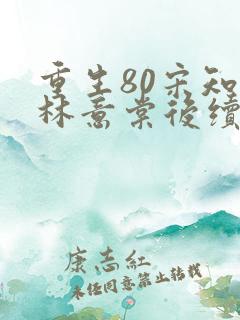 重生80宋知
林意棠後續
康志紅
未经同意禁止转载